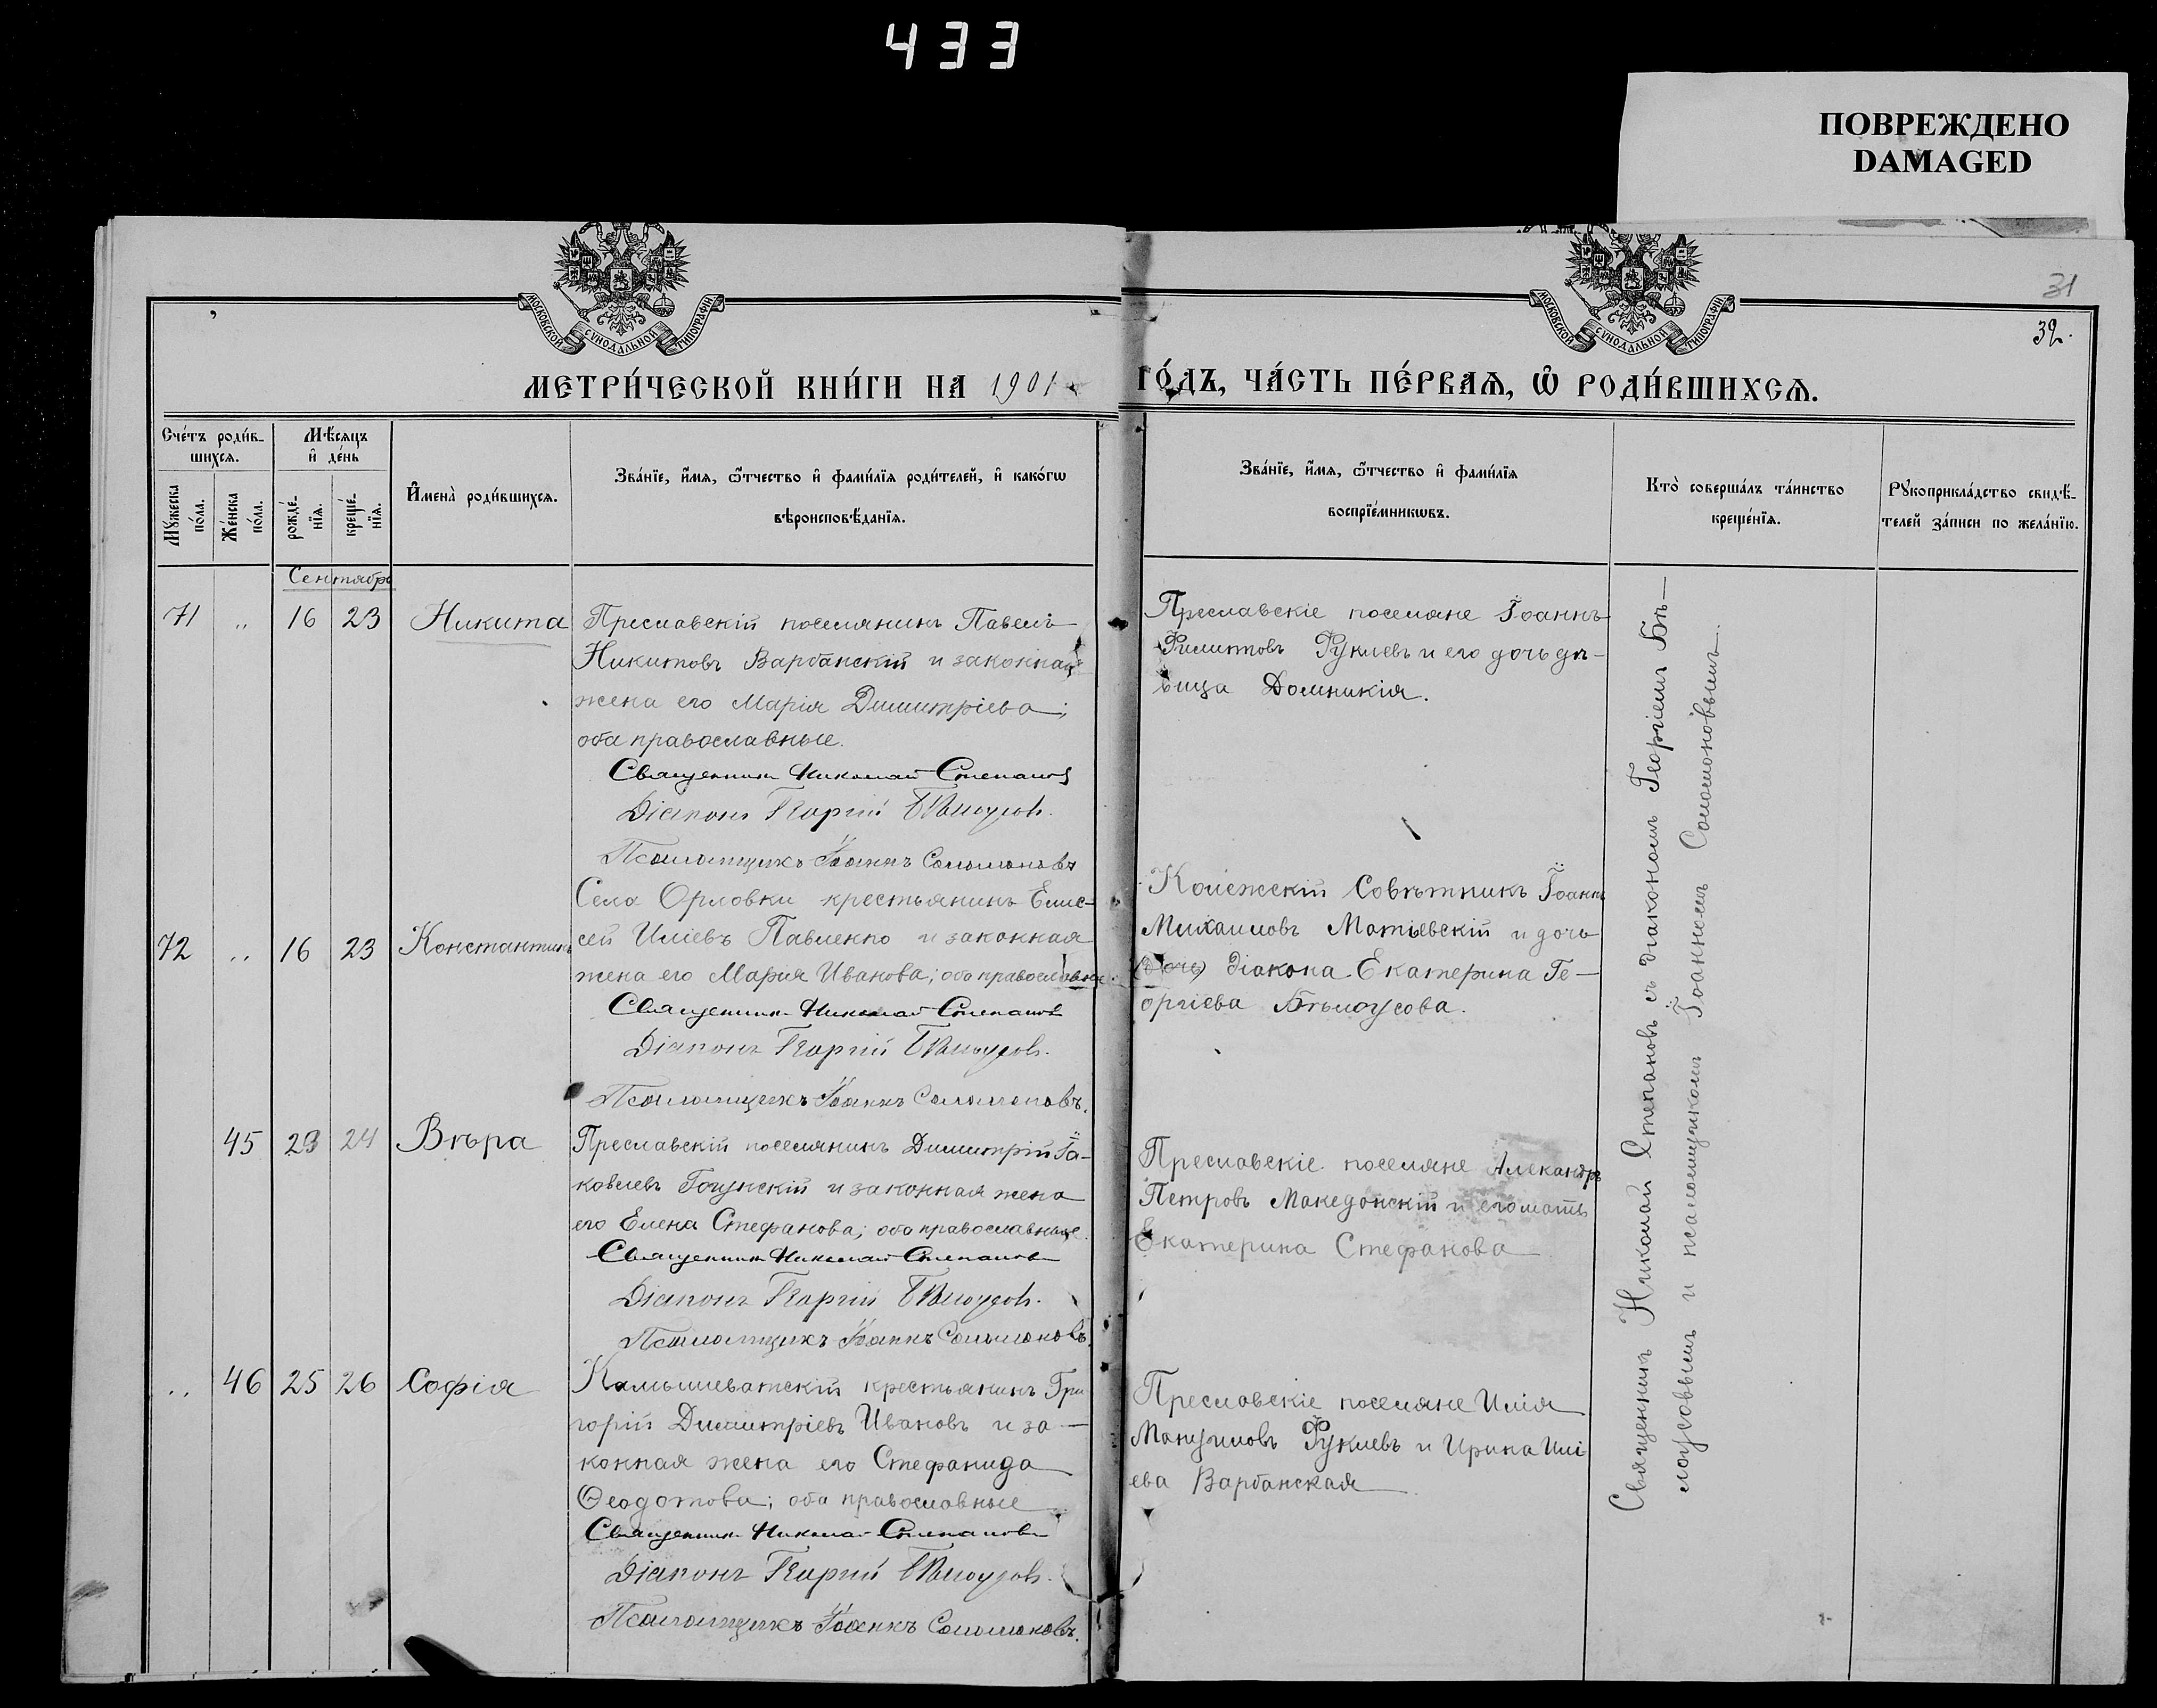 433
ПОВРЕЖДЕНО
DAMAGED
МОСКОВСКОЙ СѴНОДАЛЬНОЙ ТИПОГРАФІИ
МОСКОВСКОЙ СѴНОДАЛЬНОЙ ТИПОГРАФІИ
31
32.
МЕТРИ́ЧЕСКОЙ КНИ́ГИ НА 1901 ГО́ДЪ, ЧА́СТЬ ПЕ́РВАѦ, Ѽ РОДИ́ВШИХСѦ.
Сче́тъ роди́в-
шихся.
Мꙋ́жеска по́ла.
Же́нска по́ла.
Мѣ́сяцъ
и҆ де́нь
рожде́-
нїя.
креще́-
нїя.
И҆мена̀ роди́вшихся.
Зва́нїе, и҆́мя, ѻ҆́тчество и҆ фами́лїя роди́телей, и҆ како́гѡ
вѣроисповѣ́данїя.
Зва́нїе, и҆́мя, ѻ҆́тчество и҆ фами́лїя
воспрїе́мникѡвъ.
Кто̀ соверша́лъ та́инство
креще́нїя.
Рꙋкоприкла́дство свидѣ́-
телей за́писи по жела́нїю.
Сентябрь
71 „ 16 23 Никита
Преславскій поселянинъ Павелъ
Никитовъ Варбанскій и законная
жена его Марія Димитріева;
оба православные.
Священникъ Николай Степановъ
Діаконъ Георгій Бѣлоусовъ.
Псаломщикъ Іоаннъ Соломоновъ
Преславскіе поселяне Іоаннъ
Филиповъ Фуклевъ и его дочь дѣ-
вица Домникія.
72 „ 16 23 Константинъ
Села Орловки крестьянинъ Елис-
сей Иліевъ Павленко и законная
жена его Марія Иванова; оба православные.
Священникъ Николай Степановъ
Діаконъ Георгій Бѣлоусовъ.
Псаломщикъ Іоаннъ Соломоновъ.
Колежскій Совѣтникъ Іоаннъ
Михаиловъ Матіевскій и дочь
(дочь) діакона Екатерина Ге-
оргіева Бѣлоусова.
45 23 24 Вѣра
Преславскій поселянинъ Димитрій Іа-
ковлевъ Гогунскій и законная жена
его Елена Стефанова; оба православные.
Священникъ Николай Степановъ
Діаконъ Георгій Бѣлоусовъ.
Псаломщикъ Іоаннъ Соломоновъ
Преславскіе поселяне Александръ
Петровъ Македонскій и его мать
Екатерина Стефанова
„ 46 25 26 Софія
Камышеватскій крестьянинъ Гри
горій Димитріевъ Ивановъ и за-
конная жена его Стефанида
Ѳеодотова; оба православные
Священникъ Николай Степановъ
Діаконъ Георгій Бѣлоусовъ.
Псаломщикъ Іоаннъ Соломоновъ.
Преславскіе поселяне Илія
Мануиловъ Фуклевъ и Ирина Илі-
ева Варбанская
Священникъ Николай Степановъ съ діакономъ Георгіемъ Бѣ-
лоусовымъ и псаломщикомъ Іоанномъ Соломоновымъ.